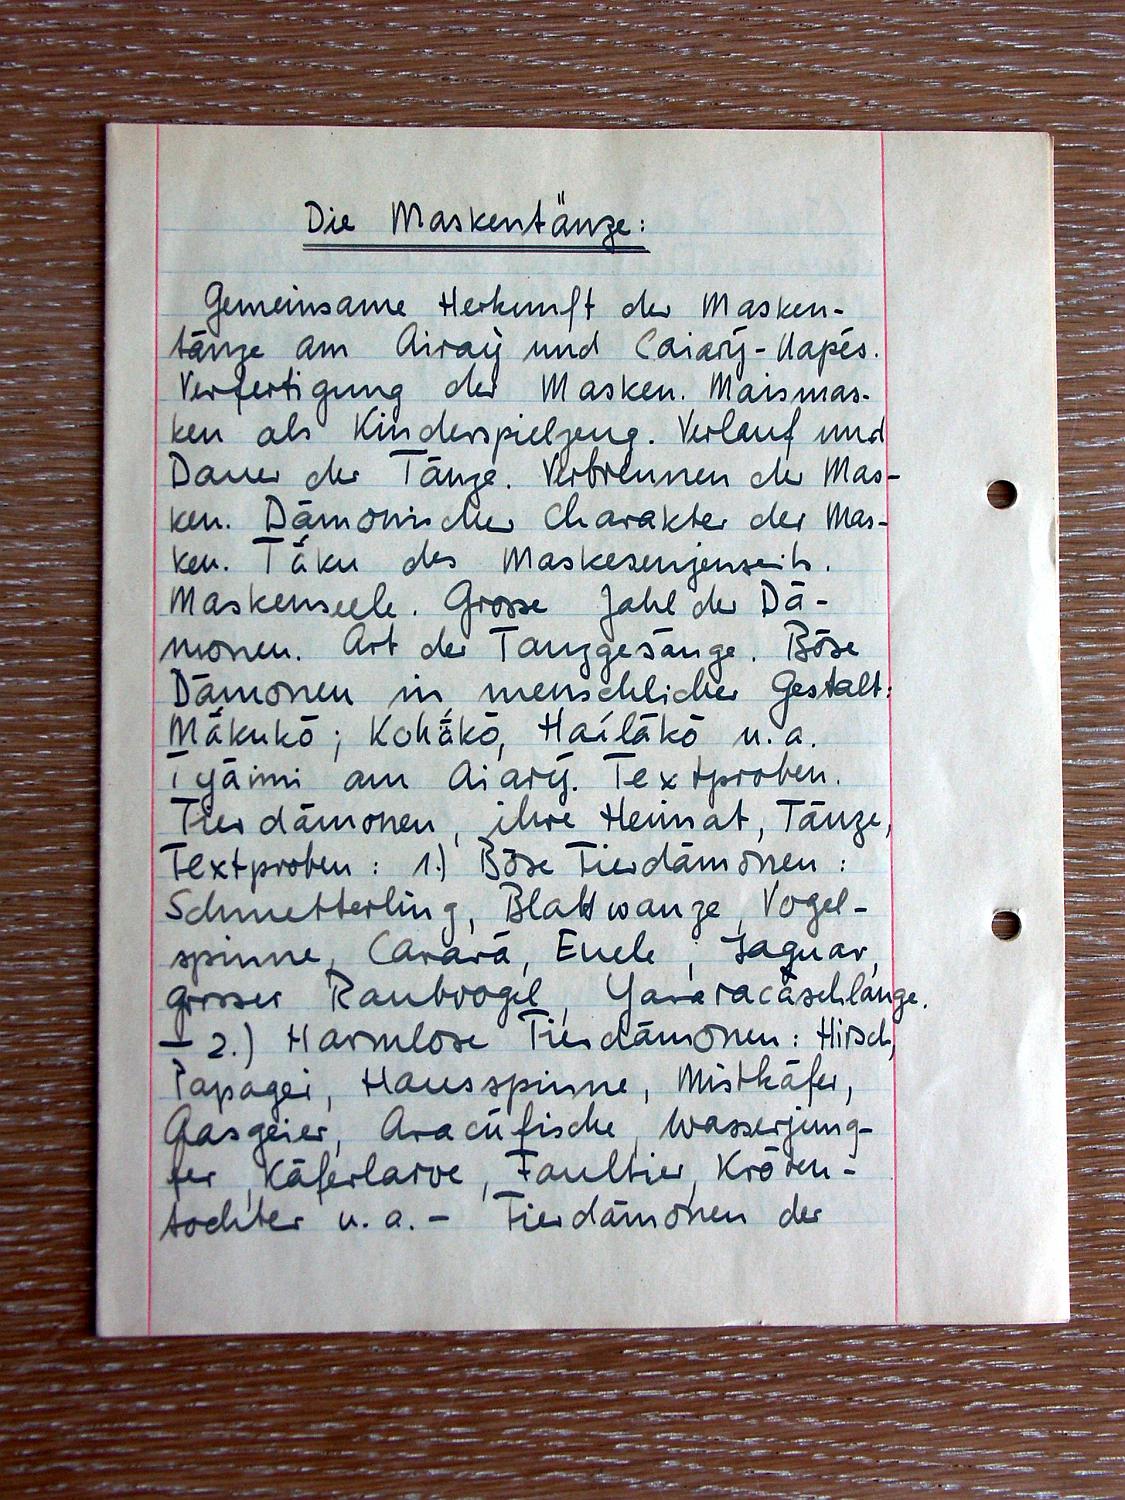 Die Maskentänze:
Gemeinsame Herkunft der Masken-
tänze am Airaÿ und Caiarÿ-Uapés.
Verfertigung der Masken. Maismas-
ken als Kinderspielzeug. Verlauf und
Dauer der Tänze. Verbrennen der Mas-
ken. Dämonischer Charakter der Mas-
ken. Táku das Maskesenjenseits.
Maskenseele. Grosse Zahl der Dä-
monen. Art der Tanzgesänge. Böse
Dämonen in menschlicher Gestalt:
Mákukö; Kohäkö, Haíläkö u.a.
Tyäimi am Aiarÿ. Textproben.
Tierdämonen, ihre Heimat, Tänze,
Textproben: 1.) Böse Tierdämonen:
Schmetterling, Blattwanze, Vogel-
spinne, Carará, Euele, Jaguar,
grosser Raubvogel, Yararacáschlange.
- 2.) Harmlose Tierdämonen: Hirsch,
Papagei, Hausspinne, Mistkäfer,
Aasgeier, Aracúfische, Wasserjung-
fer, Käferlarve, Faultier, Kröten-
tochter u.a. - Tierdämonen der